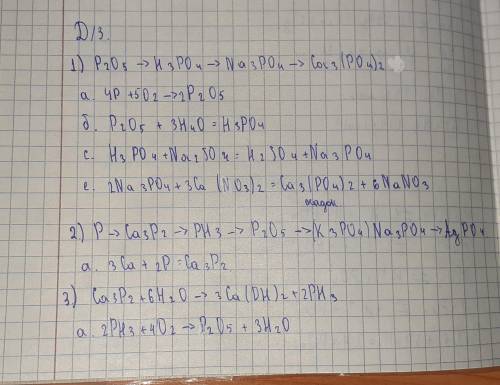 Д/З.
1) P2O5 → H3PO4 → Na3PO4 → Ca3(PO4)2
а. 4P + 5O2 → 2P2O5
б. P2O5 + 3H4O = H3PO4
с. H3PO4 + Na2SO4 = H2SO4 + Na3PO4
е. 2Na3PO4 + 3Ca(NO3)2 = Ca3(PO4)2 + 6NaNO3
осадок
2) P → Ca3P2 → PH3 → P2O5 → (K3PO4) Na3PO4 → Ag3PO4
а. 3Ca + 2P = Ca3P2
3) Ca3P2 + 6H2O → 3Ca(OH)2 + 2PH3
а. 2PH3 + 4O2 → P2O5 + 3H2O